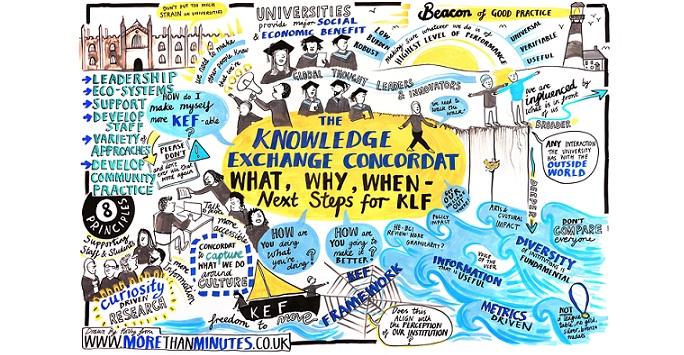 DON'T PUT TOO MUCH
STRAIN ON UNIVERSITIES
UNIVERSITIES
provide major SOCIAL
& ECONOMIC BENEFIT
LOW
BURDEN
ROBUST
making sure whatever we do is of
HIGHEST LEVEL OF PERFORMANCE
Beacon OF GOOD PRACTICE
UNIVERSAL
VERIFIABLE
USEFUL
we need to make
other people know
GLOBAL THOUGHT LEADERS & INNOVATORS
we need to
walk the
walk
we are
influenced by
what is in front
of us
BROADER
DEEPER
ANY INTERACTION
THE UNIVERSITY
HAS WITH THE
OUTSIDE
WORLD
LEADERSHIP
ECO-SYSTEMS
SUPPORT
DEVELOP
STAFF
VARIETY of
APPROACHES
DEVELOP
COMMUNITY
PRACTICE
HOW DO I
MAKE myself
more
KEF-able
?
PLEASE
DON'T
and don't
ever use that
word again
THE
KNOWLEDGE
EXCHANGE CONCORDAT
WHAT, WHY, WHEN-
Next Steps for KLF
8
PRINCIPLES
Supporting
Staff & Students
CURIOSITY
DRIVEN
RESEARCH
Talk to
people
more
accessible
information
CONCORDAT
to capture
WHAT WE DO
around
CULTURE
HOW are
you doing
what
you're
doing?
HOW are
YOU going
to make it
BETTER?
KEF
freedom to move
KEF
FRAMEWORK
POLICY
IMPACT
GRANULARITY?
ARTS &
CULTURAL
IMPACT
VOICE OF THE
USER
INFORMATION
THAT IS useful
DIVERSITY
OF INSTITUTIONS IS
FUNDAMENTAL
DON'T
COMPARE
everyone
METRICS
DRIVEN
Does this
ALIGN with
the PERCEPTION
OF OUR INSTITUTION
?
NOT
a league
table, no gold,
silver, bronze
medals
Drawn By
from
WWW.MORETHANMINUTES.CO.UK